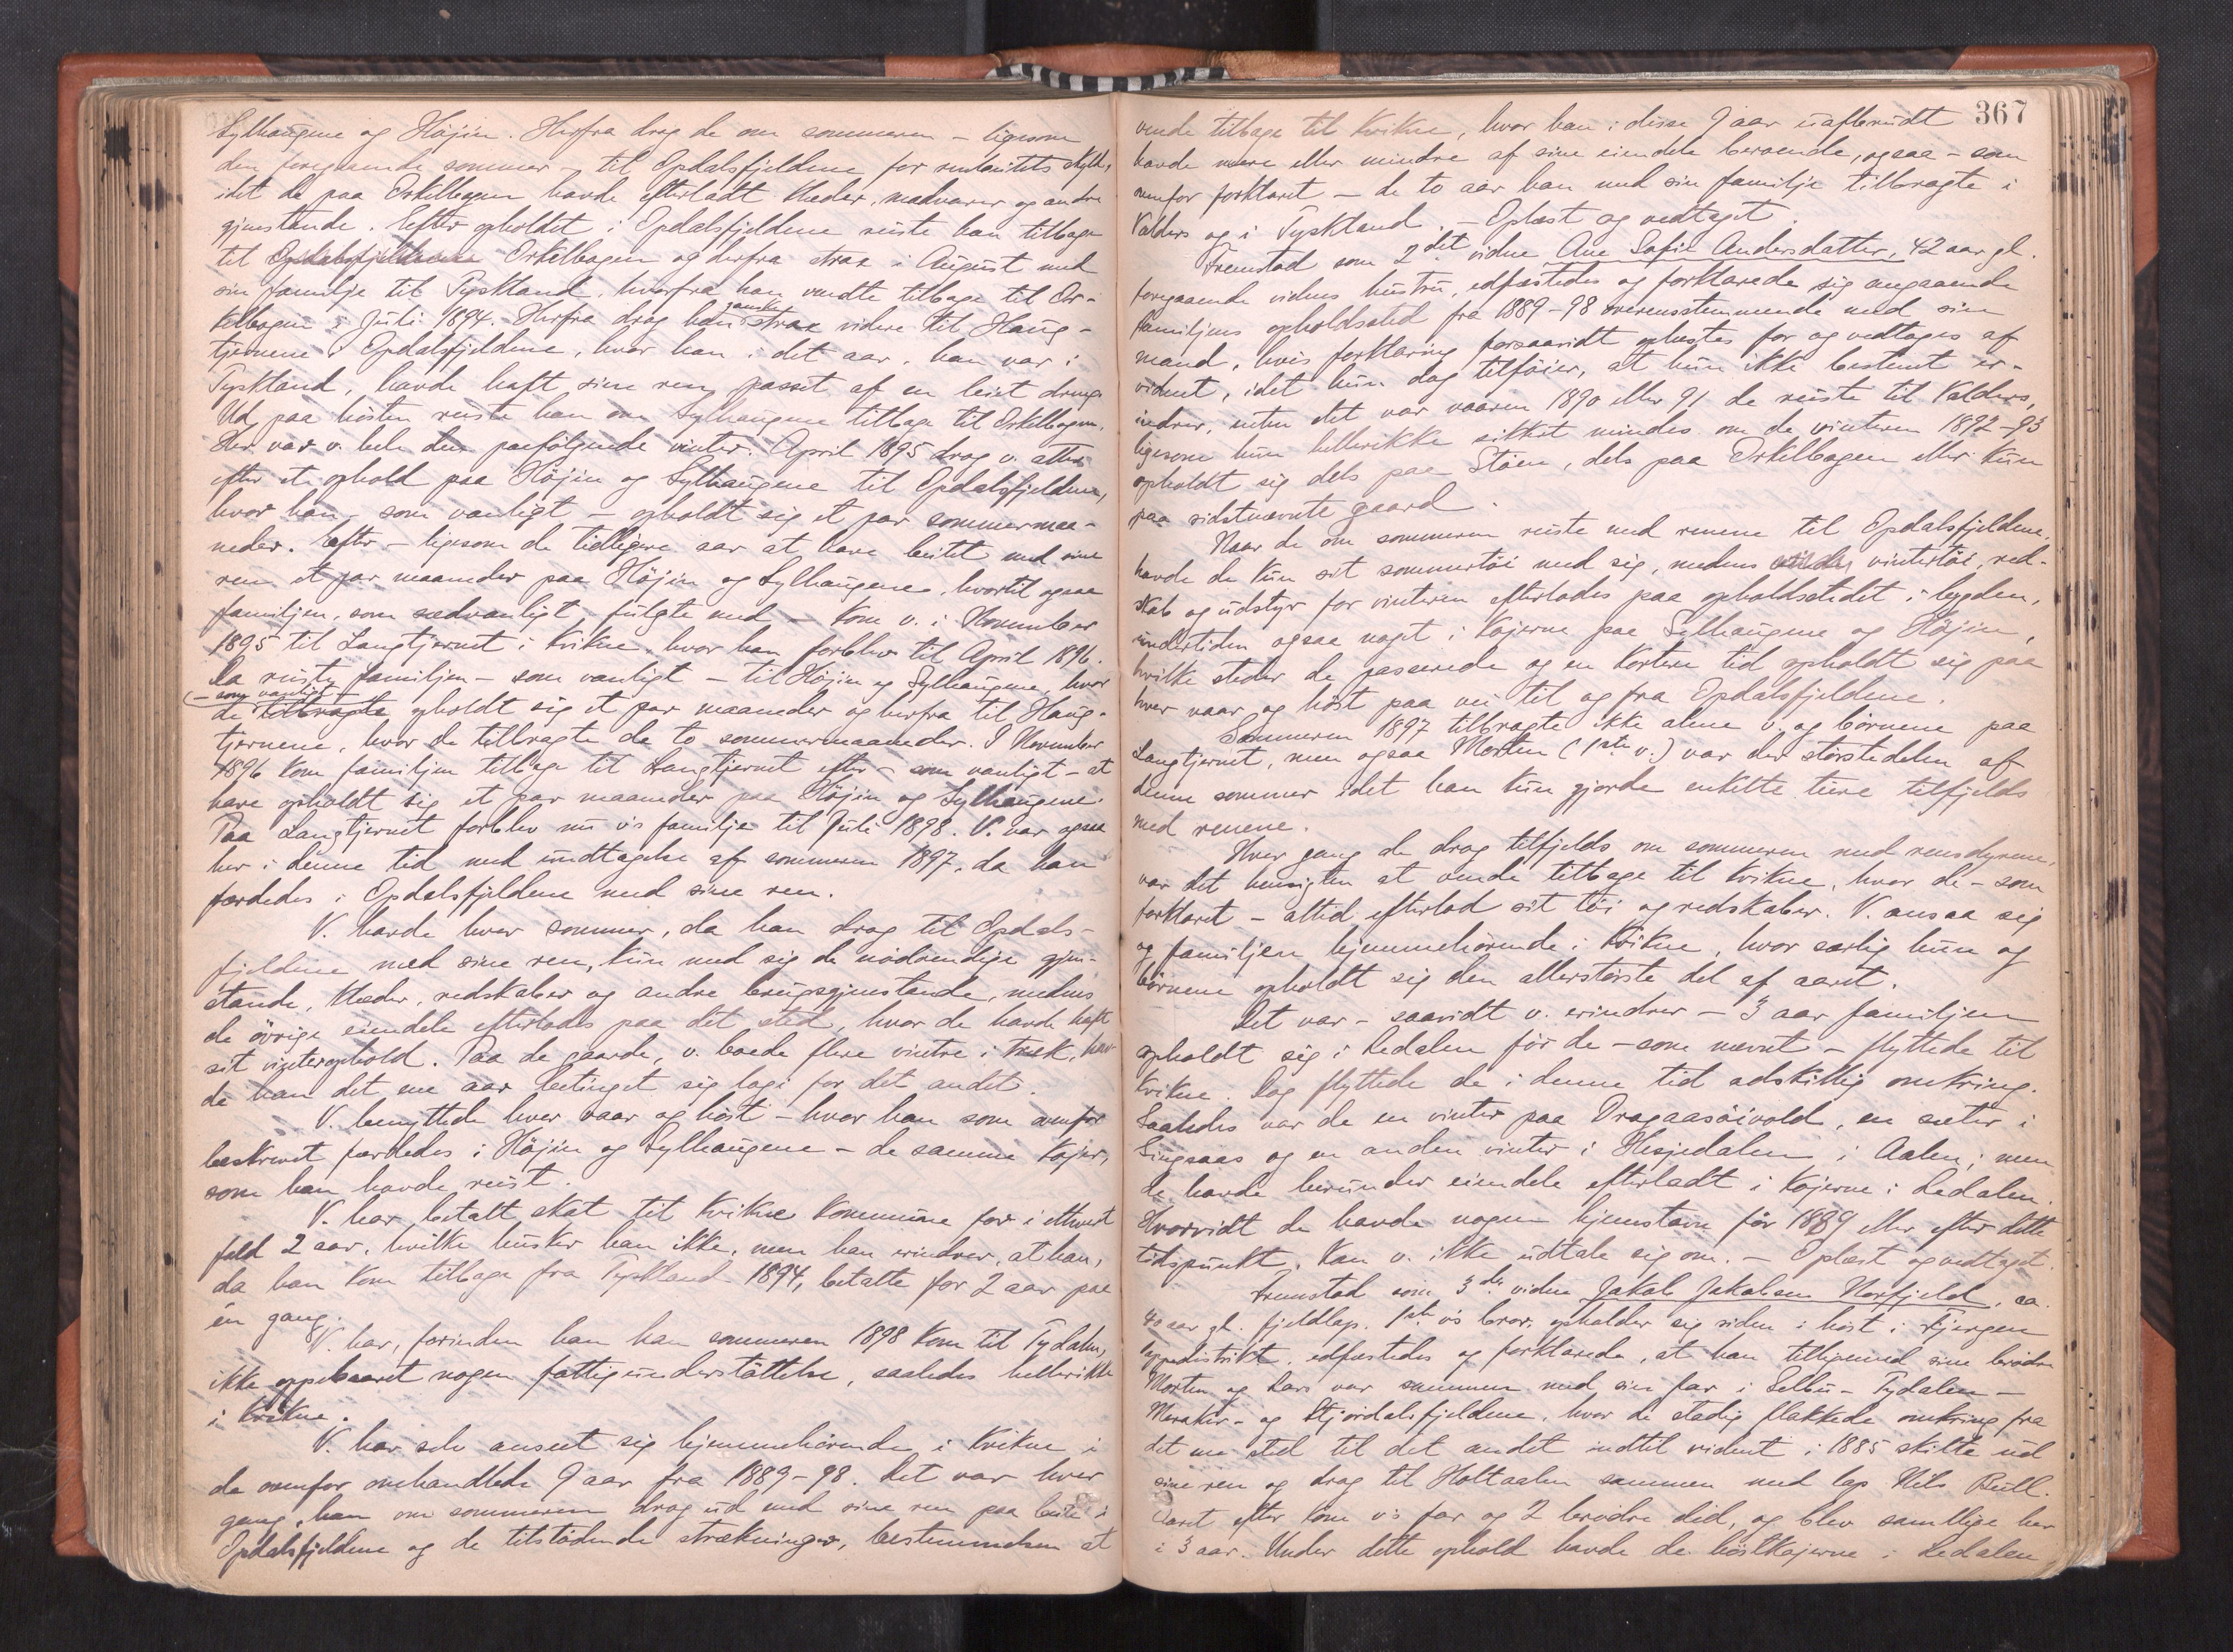 Sylhaugene og Höjin. Herfra drog de om sommeren – ligesom
den foregaaende sommer – til Opdalsfjeldene for renbeitets skyld,
idet de paa Orkelbogen havde efterladt klæder, madvarer og andre
gjenstande. Efter opholdet i Opdalsfjeldene reiste han tilbage
til Opdalsfjeldene Orkelbogen og derfra strax i August med
sin familje til Tyskland, hvorfra han vendte tilbage til Or-
kelbogen i Juli 1894. Herfra drog han ganske strax videre til Haug-
tjernene i Opdalsfjeldene, hvor han i det aar, han var i
Tyskland, havde haft sine ren passet af en leiet dreng.
Ud paa hösten reiste han om Sylhaugene tilbage til Orkelbogen.
Her var v. hele den paafölgende vinter. April 1895 drog v. atter
efter et ophold paa Höjin og Sylhaugene til Opdalsfjeldene,
hvor han – som vanligt – opholdt sig et par sommermaa-
neder. Efter – ligesom de tidligere aar at have beitet med sine
ren et par maaneder paa Höjin og Sylhaugene, hvortil ogsaa
familjen, som sædvanligt fulgte med – kom v. i November
1895 til Langtjernet i Kvikne, hvor han forblev til April 1896.
Da reiste familjen – som vanligt – til Höjin og Sylhaugene, hvor
(– som vanligt –
de tilbragte opholdt sig et par maaneder og herfra til Haug-
tjernene, hvor de tilbragte de to sommermaaneder. I November
1896 kom familjen tilbage til Langtjernet efter – som vanligt – at
have opholdt sig et par maaneder paa Höjin og Sylhaugene.
Paa Langtjernet forblev nu v's familje til Juli 1898. V. var ogsaa
her i denne tid med undtagelse af sommeren 1897, da han
færdedes i Opdalsfjeldene med sine ren.
V. havde hver sommer, da han drog til Opdals-
fjeldene med sine ren, kun med sig de nödvendige gjen-
stande, klæder, redskaber og andre brugsgjenstande, medens
de övrige eiendele efterlodes paa det sted, hvor de havde haft
sit vinterophold. Paa de gaarde, v. boede flere vintre i træk, hav-
de han det ene aar betinget sig logi for det andet.
V. benyttede hver vaar og höst – hvor han som ovenfor
beskrevet færdedes i Höjin og Sylhaugene – de samme kojer,
som han havde reist.
V. har betalt skat til Kvikne kommune for i ethvert
fald 2 aar, hvilke husker han ikke, men han erindrer, at han,
da han kom tilbage fra Tyskland 1894, betalte for 2 aar paa
én gang.
V. har, forinden han han sommeren 1898 kom til Tydalen,
ikke oppebaaret nogen fattigunderstöttelse, saaledes hellerikke
i Kvikne.
V. har selv anseet sig hjemmehörende i Kvikne i
de ovenfor omhandlede 9 aar fra 1889-98. Det var hver
gang, han om sommeren drog ud med sine ren paa beite i
Opdalsfjeldene og de tilstödende strækninger, bestemmelsen at
367
vende tilbage til Kvikne, hvor han i disse 9 aar uafbrudt
havde mere eller mindre af sine eiendele beroende, ogsaa – som
ovenfor forklaret – de to aar han med sin familje tilbragte i
Valders og i Tyskland. – Oplæst og vedtaget.
Fremstod som 2det vidne Ane Sofie Andersdatter, 42 aar gl.
foregaaende vidnes hustru, edfæstedes og forklarede sig angaaende
familjens opholdssted fra 1889-98 overensstemmende med sin
mand, hvis forklaring forsaavidt oplæstes for og vedtoges af
vidnet, idet hun dog tilföier, at hun ikke bestemt er-
indrer, enten det var vaaren 1890 eller 91 de reiste til Valders,
ligesom hun hellerikke sikkert mindes om de vinteren 1892-93
opholdt sig dels paa Stöen, dels paa Orkelbogen eller kun
paa sidstnævnte gaard.
Naar de om sommeren reiste med renene til Opdalsfjeldene,
havde de kun sit sommertöi med sig, medens vintertöi, red-
skab og udstyr for vinteren efterlodes paa opholdsstedet i bygden,
undertiden ogsaa noget i kojerne paa Sylhaugene og Höjin,
hvilke steder de passerede og en kortere tid opholdt sig paa
hver vaar og höst paa vei til og fra Opdalsfjeldene.
Sommeren 1897 tilbragte ikke alene v. og börnene paa
Langtjernet, men ogsaa Morten (1ste v.) var der störstedelen af
denne sommer idet han kun gjorde enkelte ture tilfjelds
med renene.
Hver gang de drog tilfjelds om sommeren med rensdyrene,
var det hensigten at vende tilbage til Kvikne, hvor de – som
forklaret – altid efterlod sit töi og redskaber. V. ansaa sig
og familjen hjemmehörende i Kvikne, hvor særlig hun og
börnene opholdt sig den allerstörste del af aaret.
Det var – saavidt v. erindrer – 3 aar familjen
opholdt sig i Ledalen för de – som nævnt – flyttede til
Kvikne. Dog flyttede de i denne tid adskillig omkring.
Saaledes var de en vinter paa Dragaasöivold, en sæter i
Singsaas og en anden vinter i Hesjedalen i Aalen; men
de havde herunder eiendele efterladt i kojerne i Ledalen.
Hvorvidt de havde nogen hjemstavn för 1889 eller efter dette
tidspunkt, kan v. ikke udtale sig om. – Oplæst og vedtaget.
Fremstod som 3de vidne Jakob Jakobsen Norfjeld, ca.
40 aar gl. fjeldlap. 1ste v's bror, opholder sig siden i höst i Fjergen
lappedistrikt, edfæstedes og forklarede, at han tilligemed sine brödre
Morten og Lars var sammen med sin far i Selbu- Tydalen –
Meraker- og Stjördalsfjeldene, hvor de stadig flakkede omkring fra
det ene sted til det andet indtil vidnet i 1885 skilte ud
sine ren og drog til Holtaalen sammen med lap Nils Bull.
Aaret efter kom v's far og 2 brödre did, og blev samtlige her
i 3 aar. Under dette ophold havde de höstkojerne i Ledalen